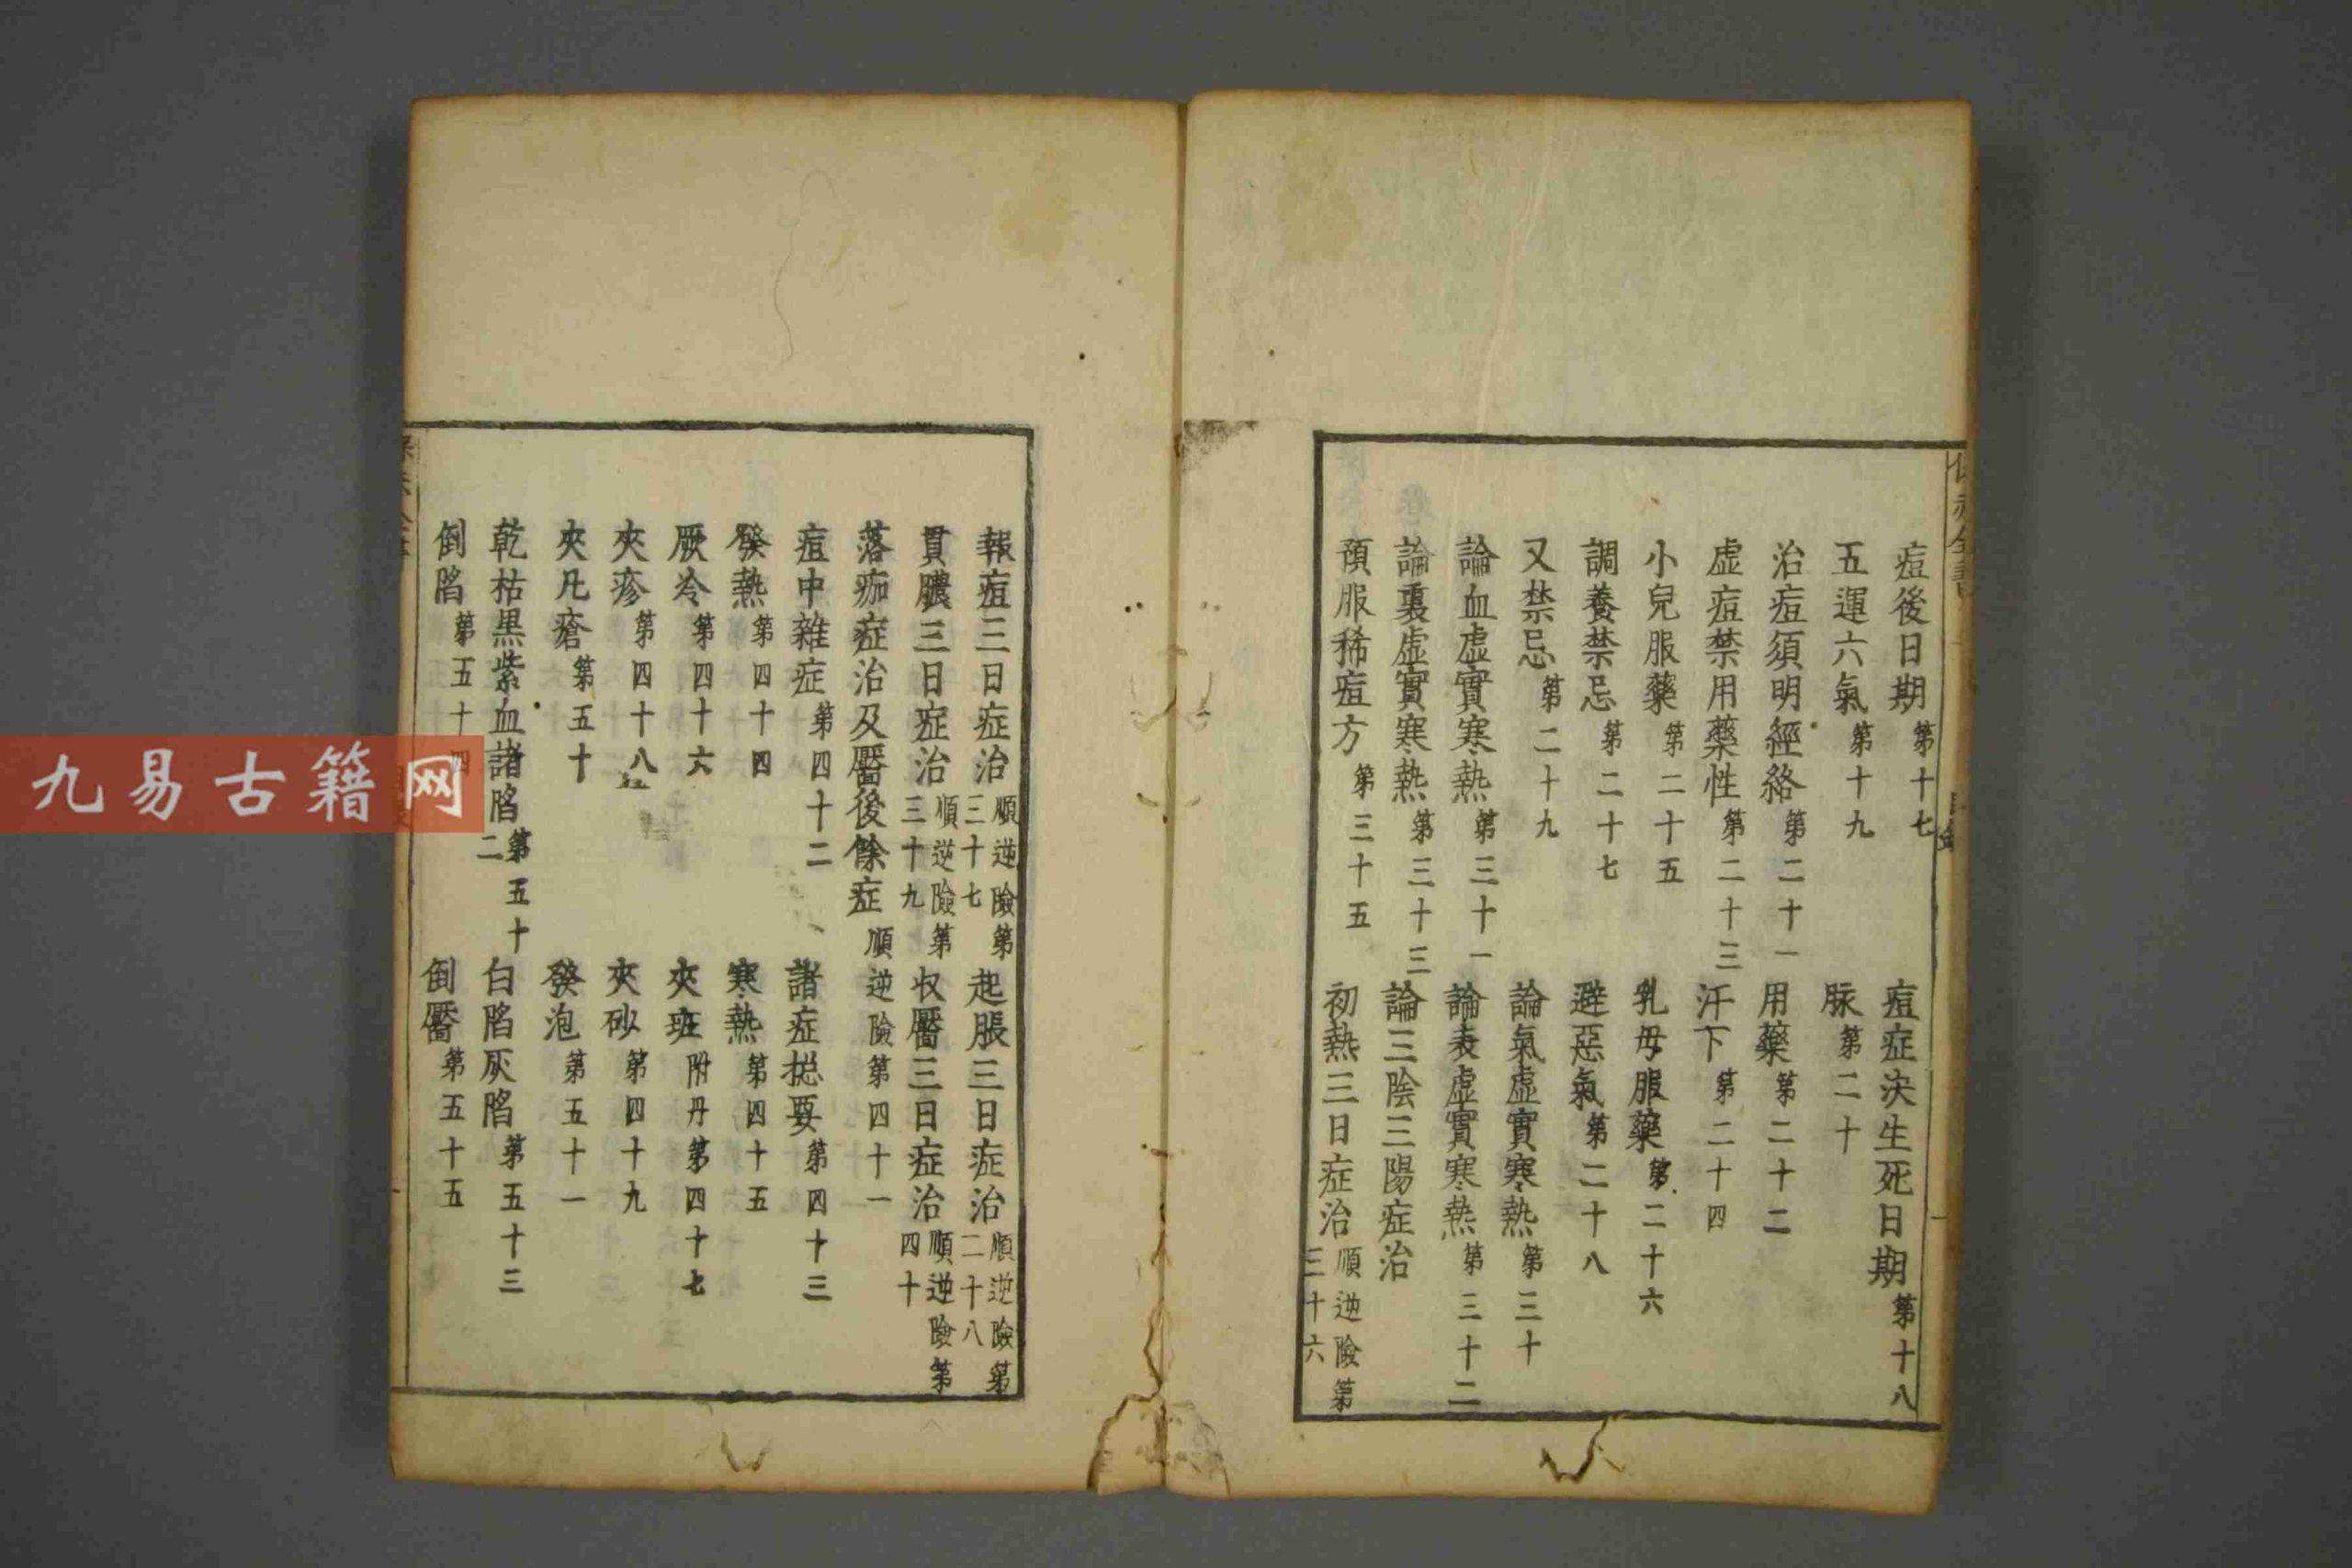 痘後日期第十七　痘症决生死日期第十八
五運六氣第十九　脉第二十
治痘須明經絡第二十一　用藥第二十二
虚痘禁用藥性第二十三　汗下第二十四
小兒服藥第二十五　乳母服藥第二十六
調養禁忌第二十七　避惡氣第二十八
又禁忌第二十九　論氣虚實寒熱第三十
論血虚實寒熱第三十一　論表虚實寒熱第三十二
論裏虚實寒熱第三十三　論三陰三陽症治
預服稀痘方第三十五　初熱三日症治順逆險第三十六
報痘三日症治順逆險第三十七　起脹三日症治順逆險第二十八
貫膿三日症治順逆險第三十九　收靨三日症治順逆險第四十
落痂症治及靨後餘症順逆險第四十一
痘中雜症第四十二　諸症摠要第四十三
發熱第四十四　寒熱第四十五
厥冷第四十六　夾班附丹第四十七
夾疹第四十八　夾砂第四十九
夾凡瘡第五十　發泡第五十一
乾枯黑紫血諸陷第五十二　白陷灰陷第五十三
倒陷第五十四　倒靨第五十五
保赤全書
目錄
九易古籍网